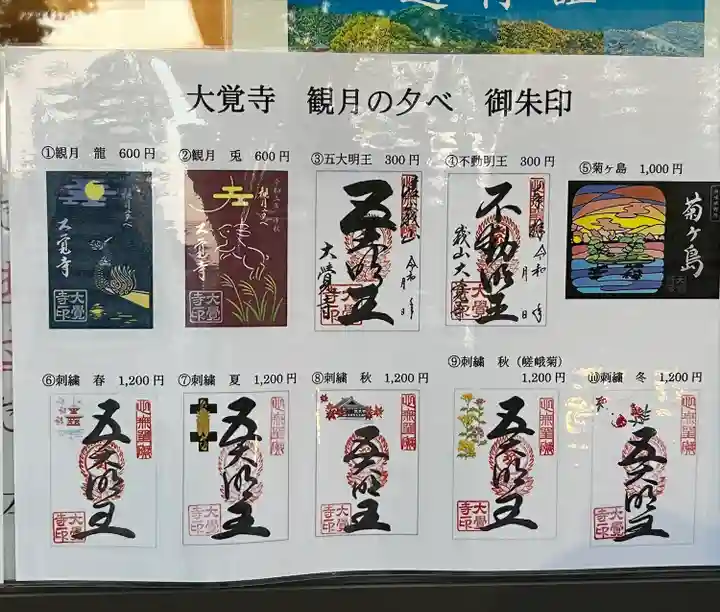 大覚寺　観月の夕べ　御朱印
①観月　龍　600円
②観月　兎　600円
③五大明王　300円
④不動明王　300円
⑤菊ヶ島　1,000円
観月の夕べ
大覚寺
大覺寺印
観月の夕べ
大覚寺
大覺寺印
五大明王
大覺寺
令和
月
不動明王
嵯峨山大覚寺
令和
月
日
菊ヶ島
⑥刺繍　春　1,200円
⑦刺繍　夏　1,200円
⑧刺繍　秋　1,200円
⑨刺繍　秋（嵯峨菊）
1,200円
⑩刺繍　冬　1,200円
五大明王
大覺寺印
五大明王
大覺寺印
五大明王
大覺寺印
五大明王
大覺寺印
五大明王
大覺寺印